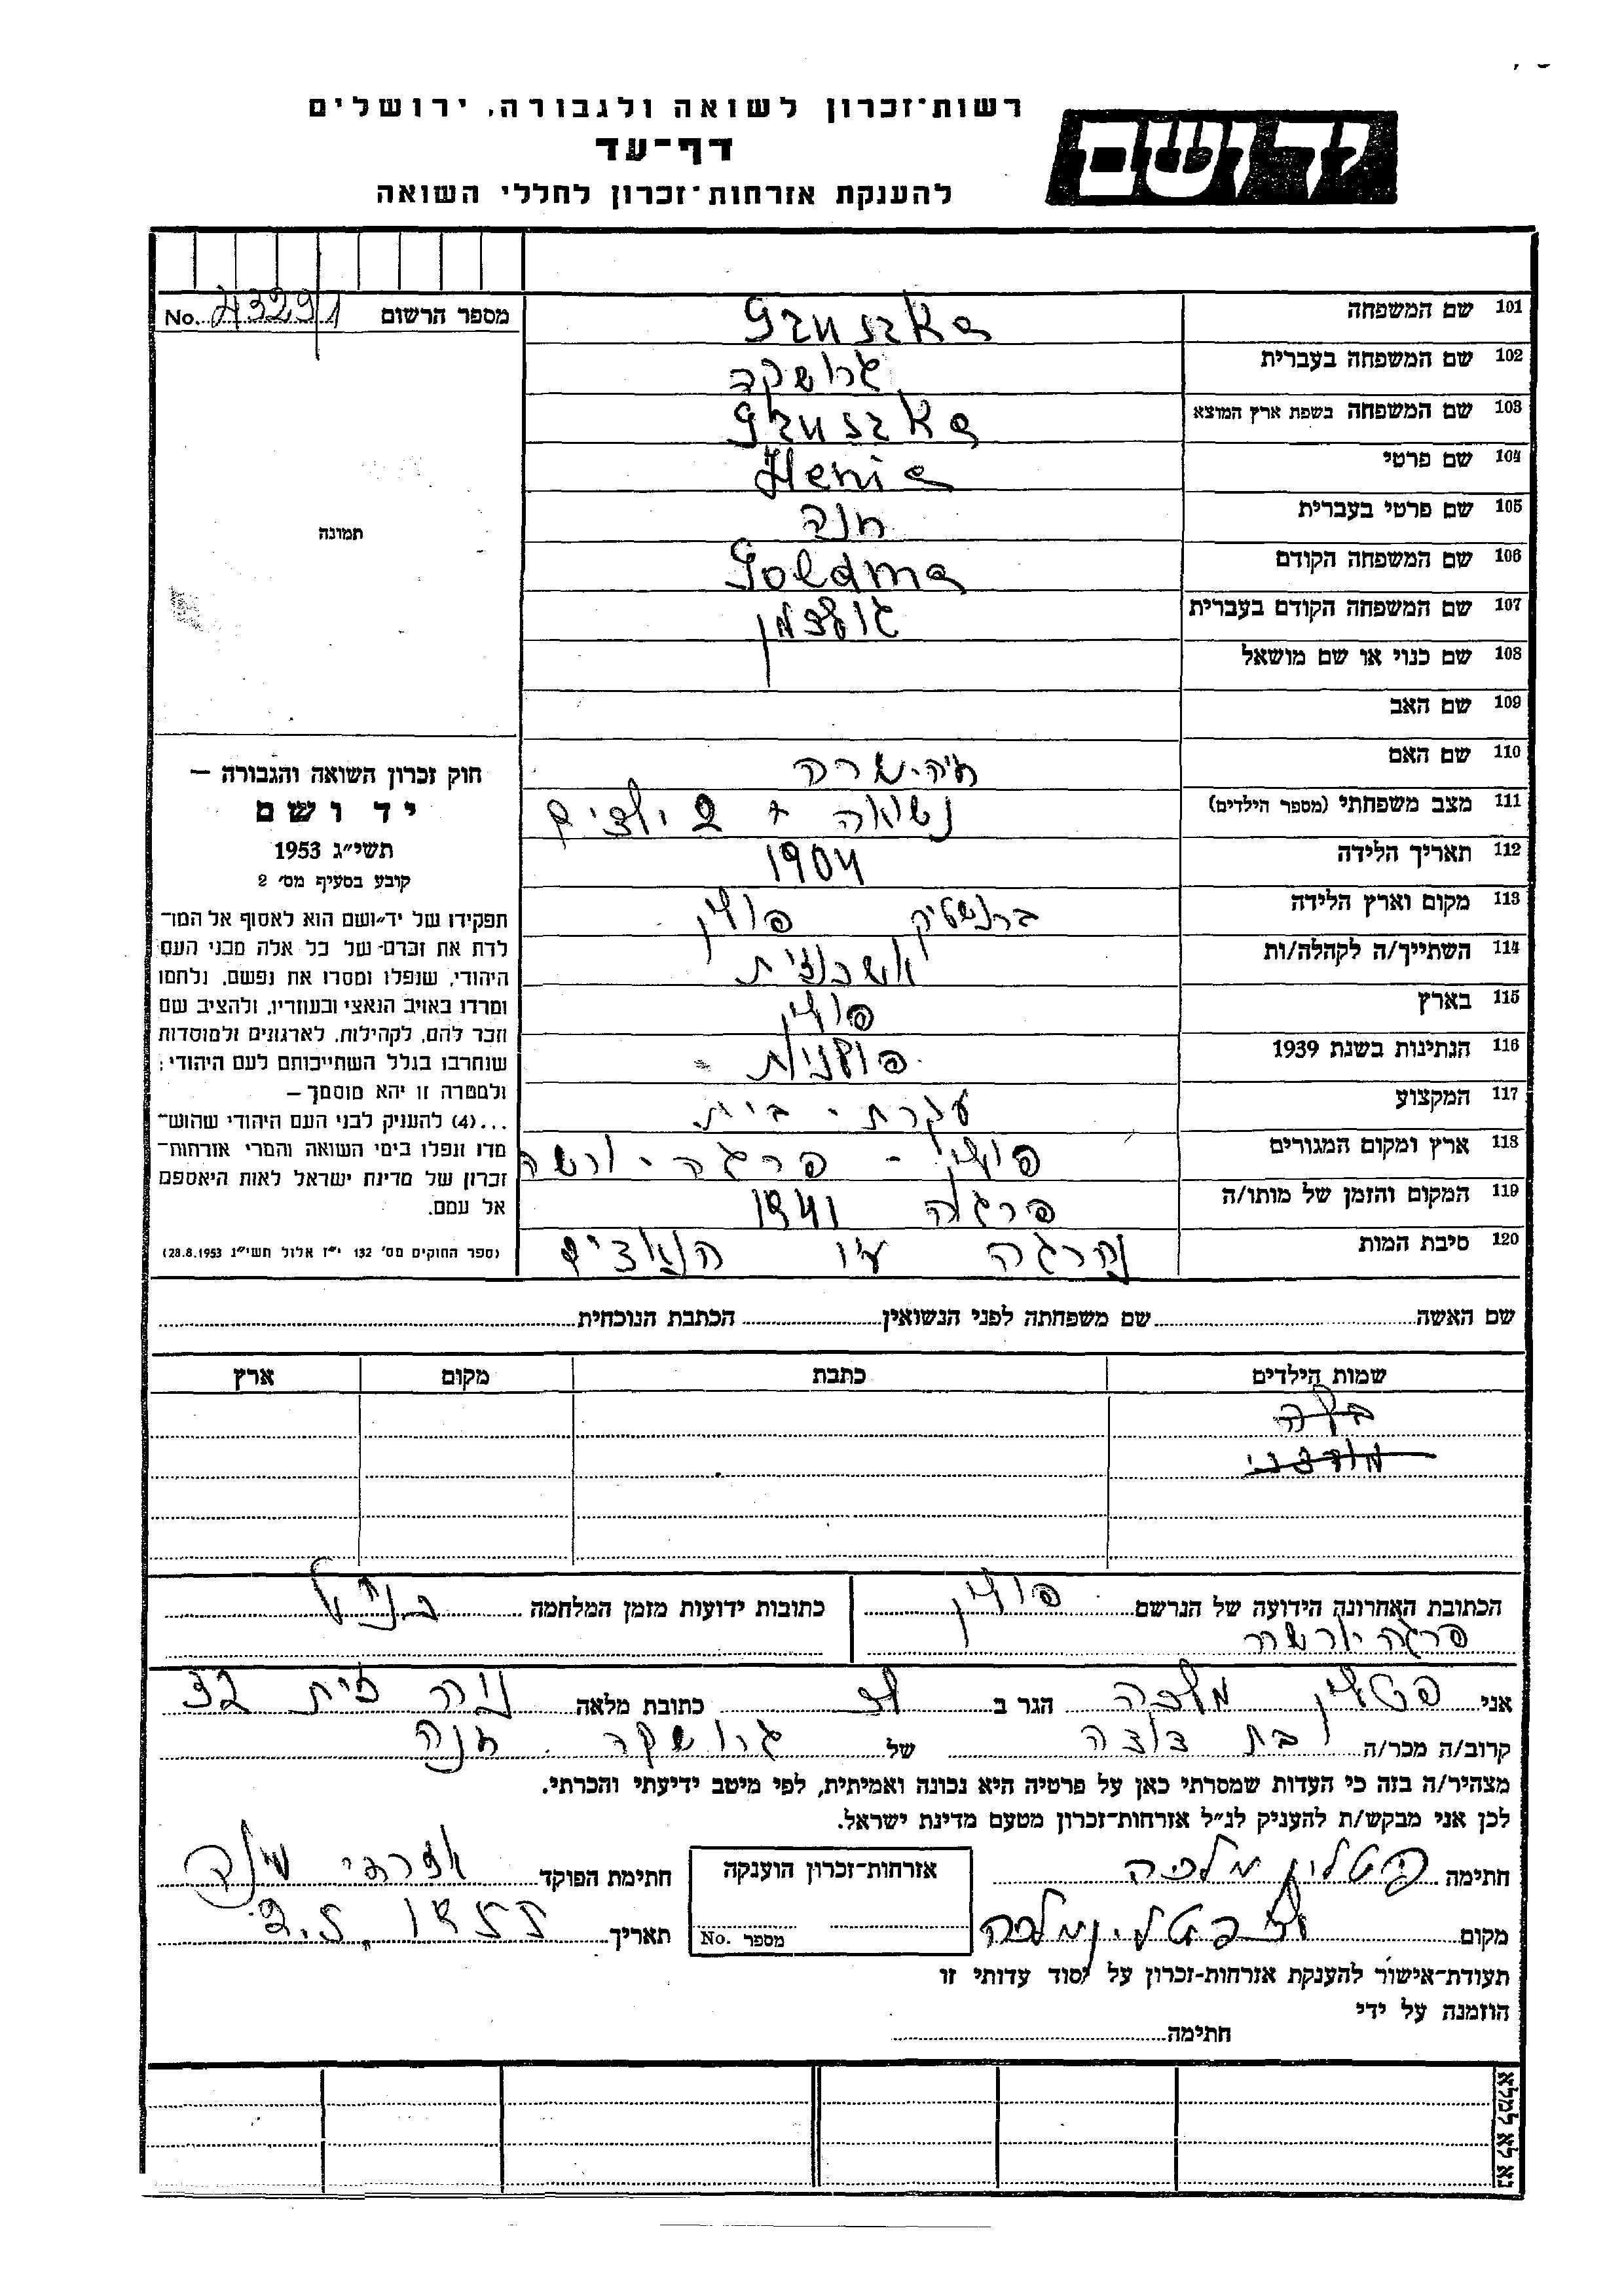 רשות־זכרון לשואה ולגבורה, ירושלים
יד ושם
דף־עד
להענקת אזרחות־זכרון לחללי השואה
מספר הרשום No. 43291
101 שם המשפחה Gruszka
102 שם המשפחה בעברית גרושקה
103 שם המשפחה בשפת ארץ המוצא Gruszka
104 שם פרטי Henia
105 שם פרטי בעברית חנה
106 שם המשפחה הקודם Goldma
107 שם המשפחה הקודם בעברית גולדמן
108 שם כנוי או שם מושאל
109 שם האב
110 שם האם חיה-שרה
111 מצב משפחתי (מספר הילדים) נשואה + 2 ילדים
112 תאריך הלידה 1904
113 מקום וארץ הלידה פולין
114 השתייך/ה לקהלה/ות אשכנזית
115 בארץ פולין
116 הנתינות בשנת 1939 פולנית
117 המקצוע עקרת-בית
118 ארץ ומקום המגורים פולין - פרגה-ורשה
119 המקום והזמן של מותו/ה פרגה 1941
120 סיבת המות נהרגה ע״י הנאצים
תמונה
חוק זכרון השואה והגבורה —
יד ושם
תשי״ג 1953
קובע בסעיף מס׳ 2
תפקידו של יד־ושם הוא לאסוף אל המו־
לדת את זכרם של כל אלה מבני העם
היהודי, שנפלו ומסרו את נפשם, נלחמו
ומרדו באויב הנאצי ובעוזריו, ולהציב שם
וזכר להם, לקהילות, לארגונים ולמוסדות
שנחרבו בגלל השתייכותם לעם היהודי;
ולמטרה זו יהא מוסמך —
...(4) להעניק לבני העם היהודי שהוש־
מדו ונפלו בימי השואה והמרי אזרחות־
זכרון של מדינת ישראל לאות היאספם
אל עמם.
(ספר החוקים מס׳ 132 י״ז אלול תשי״ג 28.8.1953)
שם האשה שם משפחתה לפני הנשואין הכתבת הנוכחית
שמות הילדים כתבת מקום ארץ
הכתובת האחרונה הידועה של הנרשם פולין
פרגה-ורשה
כתובות ידועות מזמן המלחמה כנ״ל
אני פטלין מלכה הגר ב לד כתובת מלאה נוה זית 32
קרוב/ה מכר/ה בת דודה של גרושקה חנה
מצהיר/ה בזה כי העדות שמסרתי כאן על פרטיה היא נכונה ואמיתית, לפי מיטב ידיעתי והכרתי.
לכן אני מבקש/ת להעניק לנ״ל אזרחות־זכרון מטעם מדינת ישראל.
חתימה פטלין מלכה
אזרחות־זכרון הוענקה
מספר No.
חתימת הפוקד
מקום לד פטלין מלכה
תאריך 2.5.1955
תעודת־אישור להענקת אזרחות-זכרון על יסוד עדותי זו
הוזמנה על ידי
חתימה
נא לא למלא